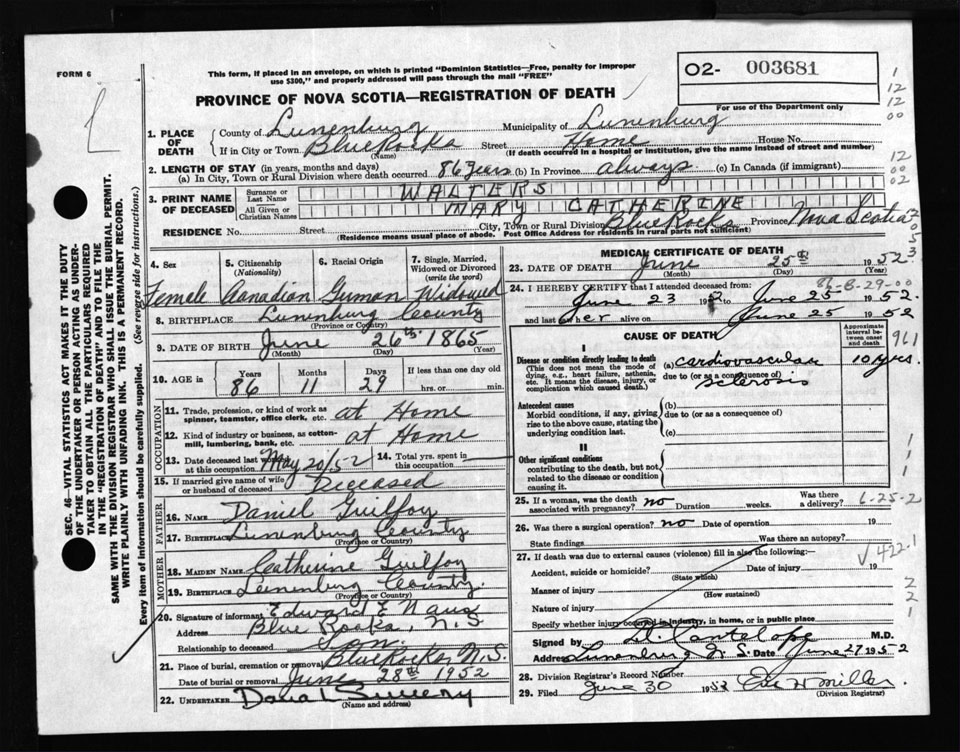 FORM 6
This form, if placed in an envelope, on which is printed "Dominion Statistics—Free, penalty for improper
use $300," and properly addressed will pass through the mail "FREE"
O2- 003681
For use of the Department only
PROVINCE OF NOVA SCOTIA—REGISTRATION OF DEATH
1. PLACE OF DEATH
County of Lunenburg Municipality of Lunenburg
If in City or Town Blue Rocks Street Home House No.
(Name) (If death occurred in a hospital or institution, give the name instead of street and number)
2. LENGTH OF STAY (in years, months and days)
(a) In City, Town or Rural Division where death occurred 86 years (b) In Province always (c) In Canada (if immigrant)
3. PRINT NAME OF DECEASED
Surname or Last Name WALTERS
All Given or Christian Names MARY CATHERINE
RESIDENCE No. Street City, Town or Rural Division Blue Rocks Province Nova Scotia
(Residence means usual place of abode. Post Office Address for residents in rural parts not sufficient)
4. Sex Female
5. Citizenship (Nationality) Canadian
6. Racial Origin German
7. Single, Married, Widowed or Divorced (write the word) Widowed
8. BIRTHPLACE Lunenburg County
(Province or Country)
9. DATE OF BIRTH June 26th 1865
(Month) (Day) (Year)
10. AGE in Years 86 Months 11 Days 29 If less than one day old
hrs. or min.
OCCUPATION
11. Trade, profession, or kind of work as spinner, teamster, office clerk, etc. at Home
12. Kind of industry or business, as cotton-mill, lumbering, bank, etc. at Home
13. Date deceased last worked at this occupation May 20/52
14. Total yrs. spent in this occupation
15. If married give name of wife or husband of deceased Deceased
FATHER
16. NAME Daniel Guilfoy
17. BIRTHPLACE Lunenburg County
(Province or Country)
MOTHER
18. MAIDEN NAME Catherine Guilfoy
19. BIRTHPLACE Lunenburg County.
(Province or Country)
20. Signature of informant Edward E
Address Blue Rocks, N.S
Relationship to deceased Son.
21. Place of burial, cremation or removal Blue Rocks, N.S.
Date of burial or removal June 28th 1952
22. UNDERTAKER
(Name and address)
MEDICAL CERTIFICATE OF DEATH
23. DATE OF DEATH June 25th 1952
(Month) (Day) (Year)
86-B-29-00
24. I HEREBY CERTIFY that I attended deceased from:
June 23 to June 25 1952.
and last saw her alive on June 25 1952
CAUSE OF DEATH
Approximate interval between onset and death
I
Disease or condition directly leading to death
(This does not mean the mode of dying, e.g., heart failure, asthenia, etc. It means the disease, injury, or complication which caused death.)
(a) Cardiovascular 10 yrs.
due to (or as a consequence of)
sclerosis
961
Antecedent causes
Morbid conditions, if any, giving rise to the above cause, stating the underlying condition last.
(b)
due to (or as a consequence of)
(c)
II
Other significant conditions
contributing to the death, but not related to the disease or condition causing it.
25. If a woman, was the death associated with pregnancy? no Duration weeks. Was there a delivery? 6-25-2
26. Was there a surgical operation? no Date of operation 19
State findings Was there an autopsy?
27. If death was due to external causes (violence) fill in also the following:
√422.1
Accident, suicide or homicide? Date of injury 19
(State which)
Manner of injury
(How sustained)
Nature of injury
Specify whether injury occurred in industry, in home, or in public place
Signed by Cantelope M.D.
Address Lunenburg N.S. Date June 27 1952
28. Division Registrar's Record Number
29. Filed June 30 1952 Miller
(Division Registrar)
SEC. 46—VITAL STATISTICS ACT MAKES IT THE DUTY
OF THE UNDERTAKER OR PERSON ACTING AS UNDER-
TAKER TO OBTAIN ALL THE PARTICULARS REQUIRED
IN THE "REGISTRATION OF DEATH" AND TO FILE THE
SAME WITH THE DIVISION REGISTRAR WHO SHALL ISSUE THE BURIAL PERMIT.
WRITE PLAINLY WITH UNFADING INK. THIS IS A PERMANENT RECORD.
Every item of information should be carefully supplied. (See reverse side for instructions.)